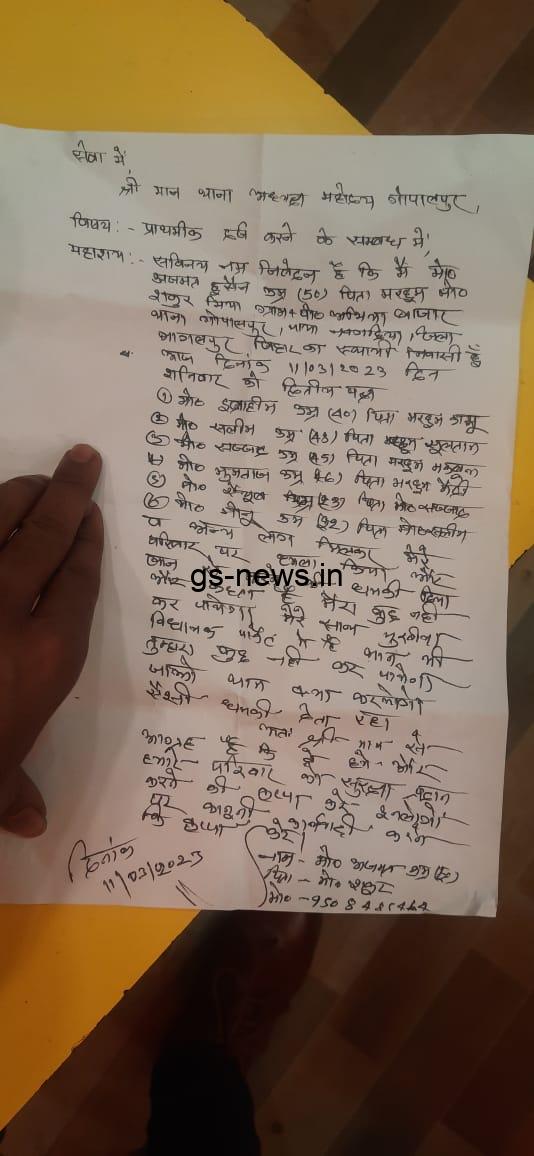 सेवा में,
श्री मान थाना अध्यक्ष महोदय गोपालपुर,
विषय:- प्राथमीक दर्ज करने के सम्बन्ध में,
महाशय:- सविनय नम्र निवेदन है कि मैं मो०
अजमत हुसैन उम्र (50) पिता मरहूम मो०
शकुर मिया ग्राम + पो० अभिया बाजार
थाना गोपालपुर, जिला
भागलपुर बिहार का स्थायी निवासी हूँ
आज दिनांक 11/03/2023 दिन
शनिवार को द्वितीय पक्ष
① मो० इब्राहीम उम्र (40) पिता मरहूम
② मो० सलीम उम्र (43) पिता मरहूम सुलतान
③ मो० सज्जाद उम्र (45) पिता मरहूम
④ मो० मुमताज उम्र पिता मरहूम
⑤ मो० पिता मो० सज्जाद
⑥ मो० उम्र (22) पिता मो० सलीम
व अन्य लोग मिलकर मेरे
परिवार पर हमला किया और
जान की धमकी दिया
और कहता है मेरा कुछ नही
कर पायेगा मेरे साथ
विधायक पॉकेट में है
तुम्हारा कुछ नही कर पायेगा
जाओ थाना
ऐसी धमकी देता रहा
अतः श्री मान से
आग्रह है कि हमें और
हमारे परिवार को सुरक्षा प्रदान
करने की कृपा करे इनलोगो
पर कानूनी कार्यवाही करने
कि कृपा करे।
दिनांक
11/03/2023
नाम - मो० अजमत
पिता - मो० शकुर
मो० -
gs-news.in